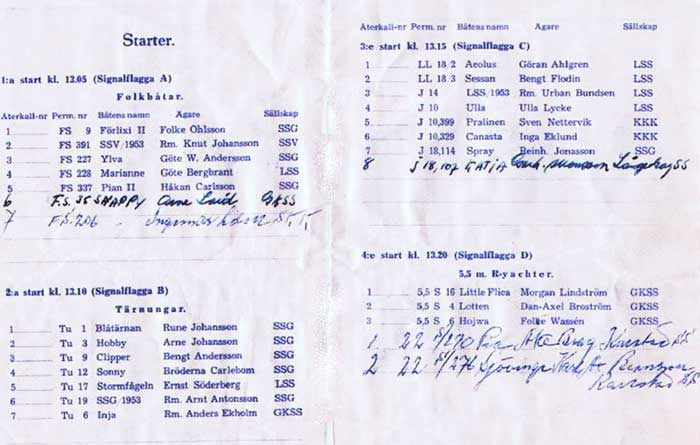 Starter.
1:a start kl. 13.05 (Signalflagga A)
Folkbåtar.
Återkall-nr Perm. nr Båtens namn Ägare Sällskap
1 FS 9 Förlixi II Folke Ohlsson SSG
2 FS 391 SSV/1953 Rm. Knut Johansson SSV
3 FS 227 Ylva Göte W. Andersson SSG
4 FS 228 Marianne Göte Bergbrant LSS
5 FS 337 Pian II Håkan Carlsson SSG
6 F.S. 35 SNAPPY Arne GKSS
7 F.S. 206 - Ingemar
2:a start kl. 13.10 (Signalflagga B)
Tärnungar.
1 Tu 1 Blåtärnan Rune Johansson SSG
2 Tu 3 Hobby Arne Johansson SSG
3 Tu 9 Clipper Bengt Andersson SSG
4 Tu 12 Sonny Bröderna Carlebom SSG
5 Tu 17 Stormfågeln Ernst Söderberg LSS
6 Tu 19 SSG/1953 Rm. Arnt Antonsson SSG
7 Tu 6 Inja Rm. Anders Ekholm GKSS
Återkall-nr Perm. nr Båtens namn Ägare Sällskap
3:e start kl. 13.15 (Signalflagga C)
1 LL 18/2 Aeolus Göran Ahlgren LSS
2 LL 18/3 Sessan Bengt Flodin LSS
3 J 14 LSS/1953 Rm. Urban Bundsen LSS
4 J 10 Ulla Ulla Lycke LSS
5 J 10,399 Pralinen Sven Nettervik KKK
6 J 10,329 Canasta Inga Eklund KKK
7 J 18,114 Spray Reinh. Jonasson SSG
8 J 18,107 KATJA
4:e start kl. 13.20 (Signalflagga D)
5,5 m. R-yachter.
1 5,5 S 16 Little Flica Morgan Lindström GKSS
2 5,5 S 4 Lotten Dan-Axel Broström GKSS
3 5,5 S 6 Hojwa Folke Wassén GKSS
1 22 Åke Brag Karlstad SS
2 22 Karlstad SS